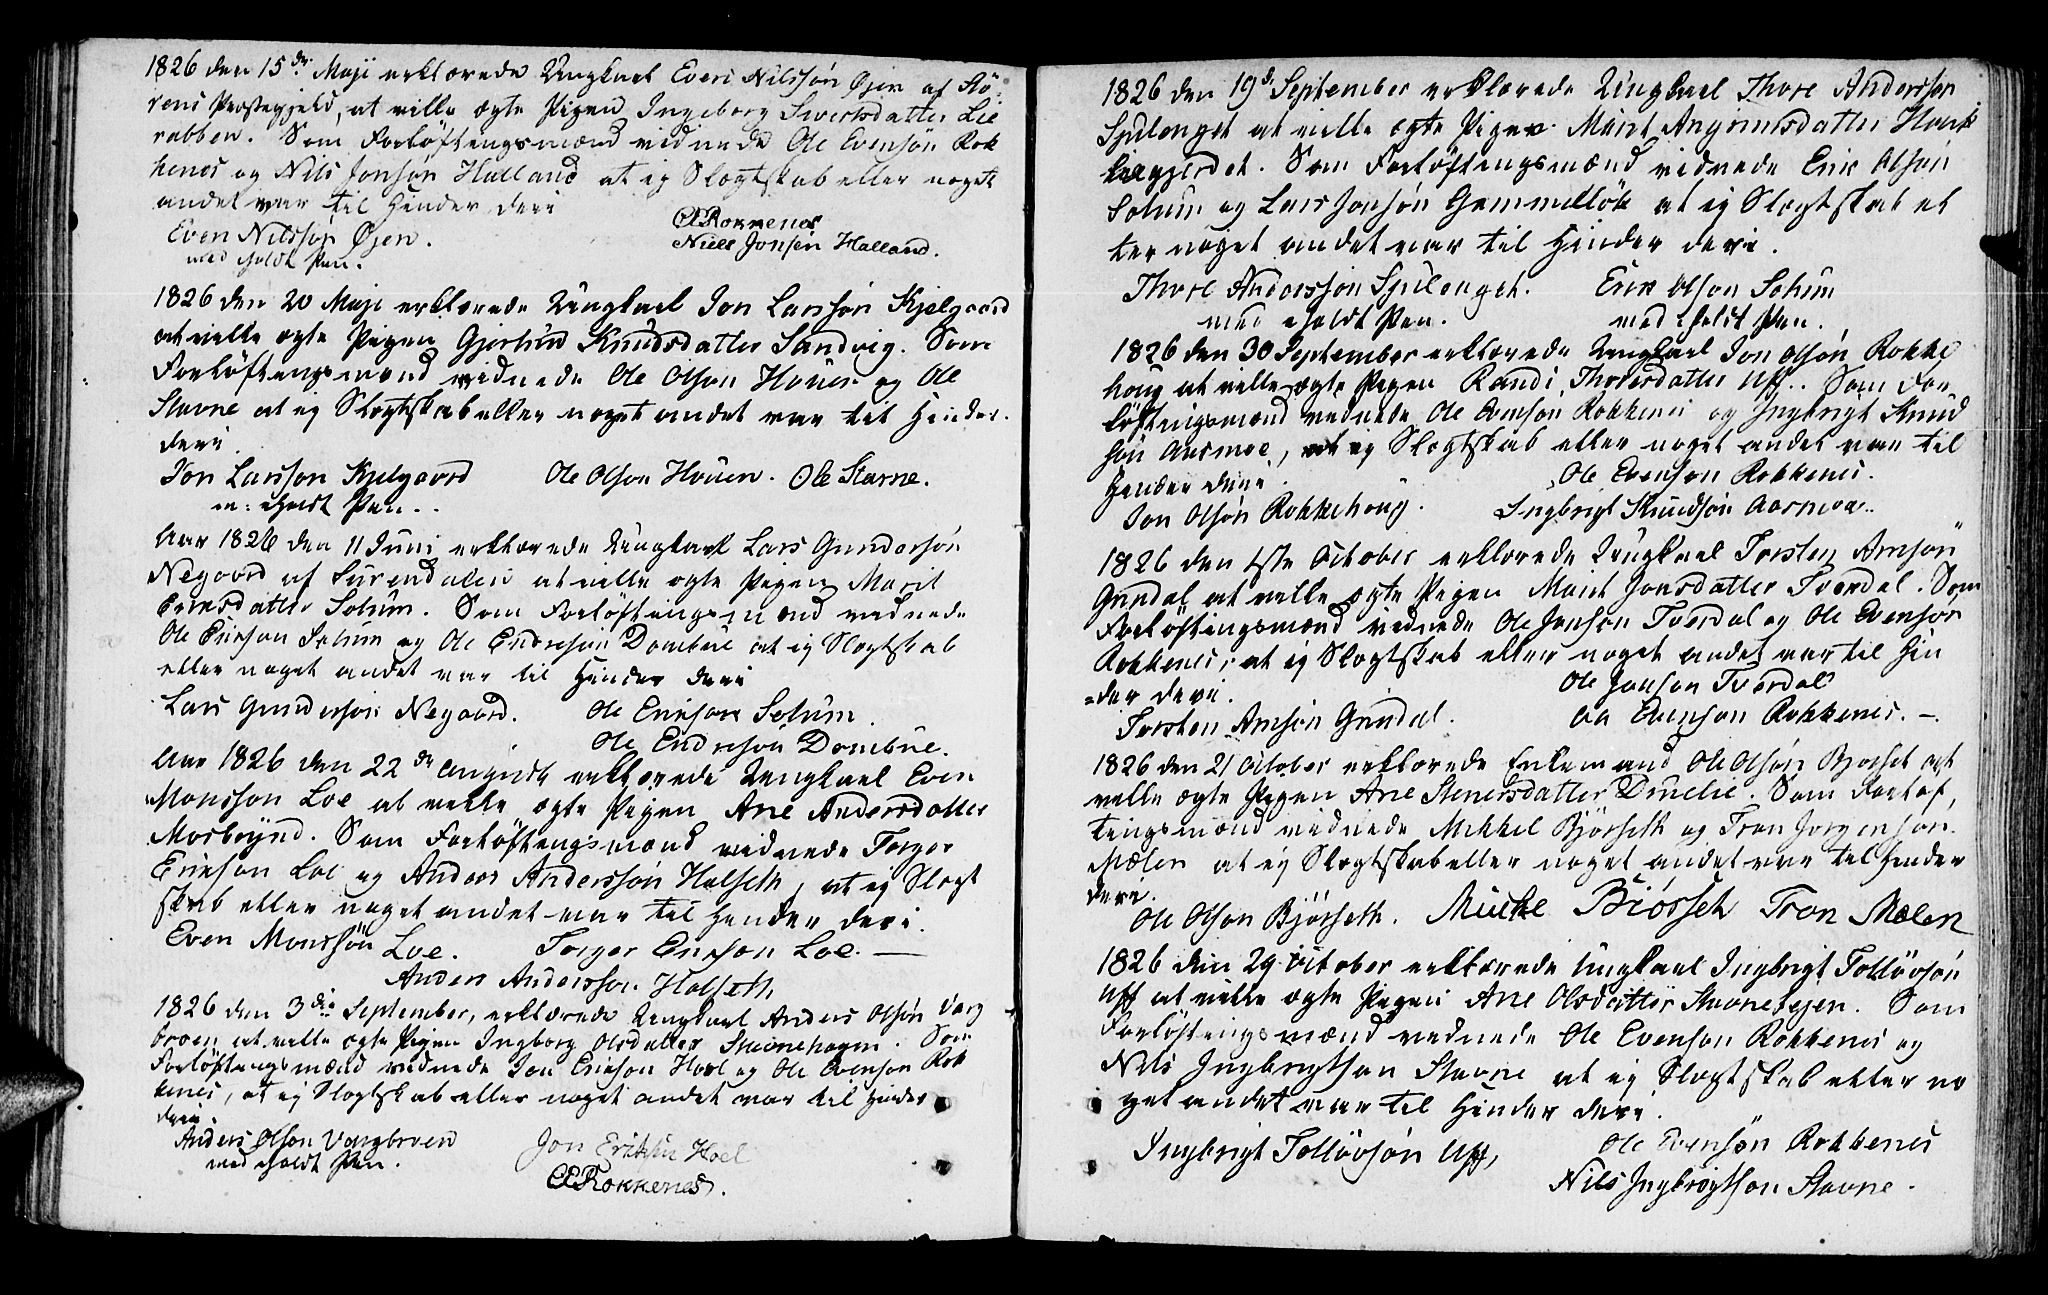 1826 den 15de Maji erklærede Ungkarl Even Nilssøn Øjen af Stö-
rens Præstegjeld, at ville ægte Pigen Ingeborg Sivertsdatter Lie
rabben. Som Forløftningsmænd vidnede Ole Evensøn Rok
kenes og Nils Jonsøn Halland at ej Slægtskab eller noget
andet var til Hinder deri
Even Nilssøn Øjen. OERokkenes
med holdt Pen. Niels Jonsen Halland.
1826 den 20 Maji erklærede Ungkarl Jon Larssøn Kjelgaard
at ville ægte Pigen Gjertrud Knudsdatter Sandvig. Som
Forløftningsmænd vidnede Ole Olson Houen og Ole
Stavne at ej Slægtskab eller noget andet var til Hinder
deri
Jon Larsson Kjelgaard Ole Olson Houen. Ole Stavne.
m: holdt Pen..
Aar 1826 den 11 Juni erklærede Ungkarl Lars Gundersøn
Negaard af Surendalen at ville ægte Pigen Marit
Eriksdatter Solum. Som Forløftningsmænd vidnede
Ole Erikson Solum og Ole Endreson Dombue at ej Slægtskab
eller noget andet var til Hinder deri
Lars Gundersøn Negaard. Ole Erikson Solum.
Ole Endresøn Dombue.
Aar 1826 den 22de August erklærede Ungkarl Even
Monsson Loe at ville ægte Pigen Ane Andersdatter
Mosbrynd. Som Forløftningsmænd vidnede Torger
Erikson Loe og Anders Anderssøn Halseth, at ej Slægt
skab eller noget andet var til Hinder deri.
Even Monssøn Loe. Torger Erikson Loe.
Anders Andersson Halseth
1826 den 3die September, erklærede Ungkarl Anders Olsøn Varg
broen at ville ægte Pigen Ingborg Olsdatter Stavnehagen. Som
Forløftningsmænd vidnede Jon Erikson Hoel og Ole Evenson Rok
kenes, at ej Slægtskab eller noget andet var til Hinder
deri.
Anders Olson Vargbroen Jon Erikson Hoel
med holdt Pen. OERokkenes.
1826 den 19de September erklærede Ungkarl Thore Andersson
Spulenget at ville ægte Pigen Marit Angrimsdatter Houk
kegjerdet. Som Forløftningsmænd vidnede Erik Olsøn
Solum og Lars Jonsøn Gammelløk at ej Slægtskab el
ler noget andet var til Hinder deri.
Thore Andersson Spulenget. Erik Olson Solum
med holdt Pen. med holdt Pen.
1826 den 30 September erklærede Ungkarl Jon Olsøn Rokke
houg at ville ægte Pigen Randi Thoresdatter Uff.. Som For
løftningsmænd vidnede Ole Evensøn Rokkenes og Ingbrigt Knud
søn Aasmoe, at ej Slægtskab eller noget andet var til
Hinder deri. Ole Evenson Rokkenes.
Jon Olsøn Rokkehoug. Ingbrigt Knudsøn Aasmoe..
1826 den 1ste October erklærede Ungkarl Torsten Arnsøn
Grindal at ville ægte Pigen Marit Jonsdatter Tverdal. Som
Forløftningsmænd vidnede Ole Jonson Tverdal og Ole Evensøn
Rokkenes, at ej Slægtskab eller noget andet var til Hin
=der deri. Ole Jonson Tverdal
Torsten Arnsøn Grindal. Ole Evenson Rokkenes.
1826 den 21 October erklærede Enkemand Ole Olsøn Bjørset at
ville ægte Pigen Ane Stenersdatter Druelie. Som Forløf,
tingsmænd vidnede Mikkel Bjørseth og Tron Jørgenson
Mælen at ej Slægtskab eller noget andet var til Hinder
deri.
Ole Olson Bjørseth. Mickel Biørseth Tron Mælen
1826 den 29 October erklærede Ungkarl Ingbrigt Tolløvsøn
Uff at ville ægte Pigen Ane Olsdatter Stavnetejen. Som
Forløftningsmænd vidnede Ole Evenson Rokkenes og
Nils Ingbrigtson Stavne at ej Slægtskab eller no
get andet var til Hinder deri.
Ingbrigt Tolløvsøn Uff, Ole Evensøn Rokkenes
Nils Ingbrigtson Stavne.